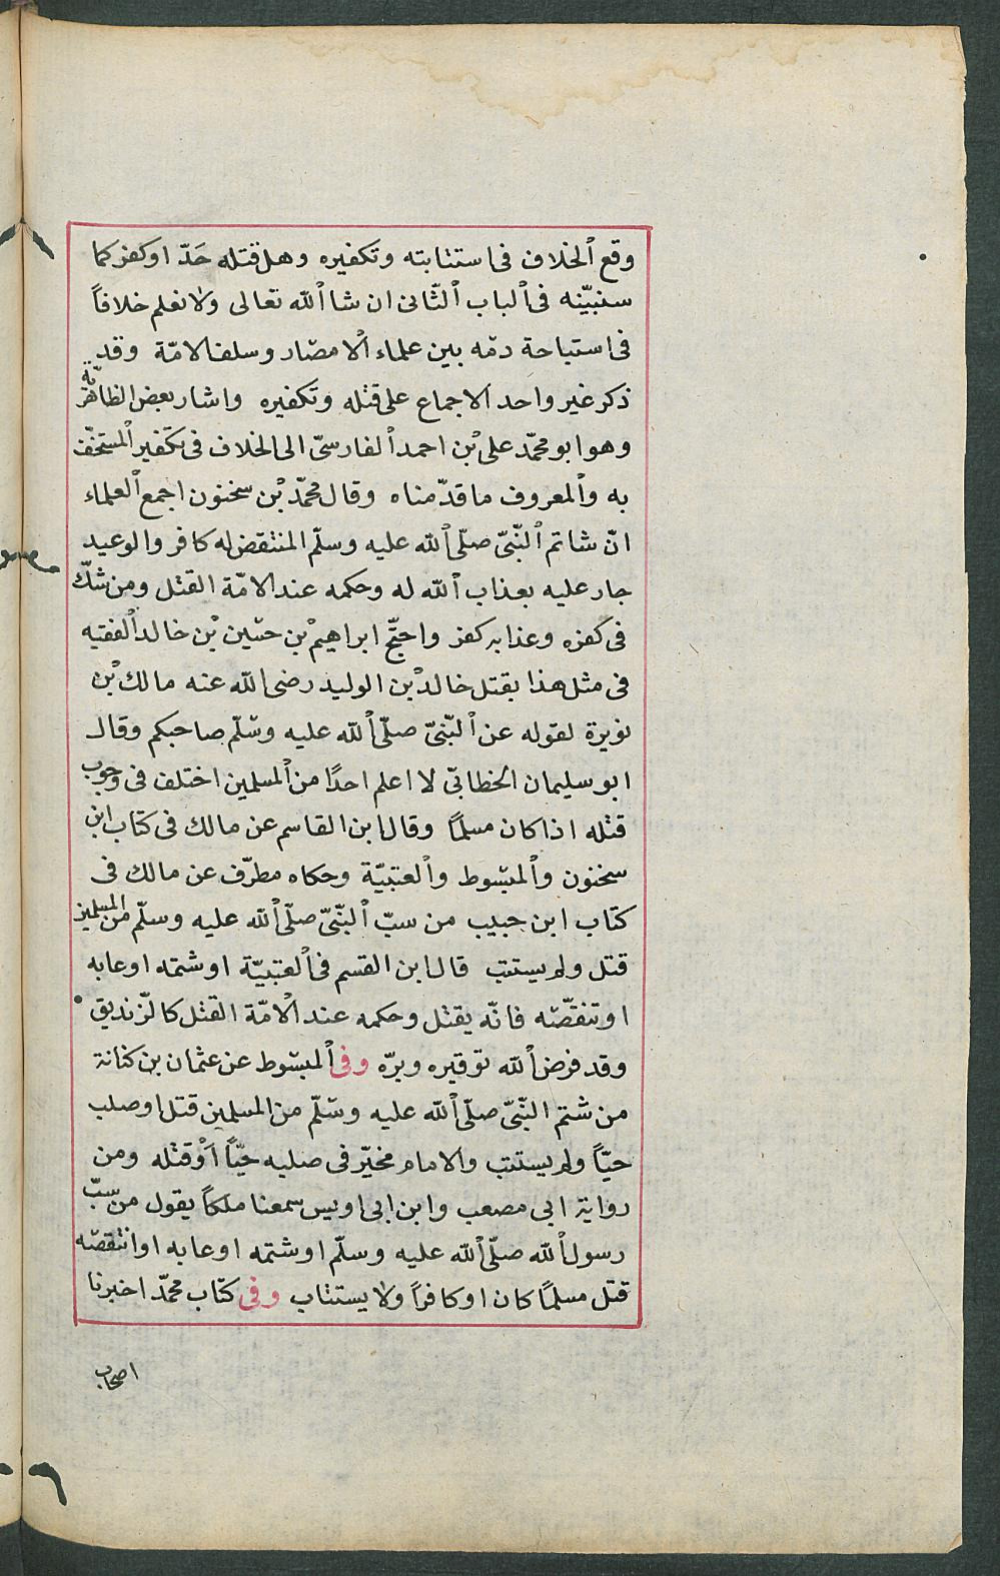 وقع الخلاف فى استتابته وتكفيره وهل قتله حَدّ او كفر كما
سنبيّنه فى الباب الثّانى ان شا الله تعالى ولا نعلم خلافاً
فى استباحة دمّه بين علماء الامصار وسلف الامّة وقد
ذكر غير واحد الاجماع على قتله وتكفيره واشار بعض الظاهريّة
وهو ابو محمّد على بْن احمد الفارسىّ الى الخلاف فى تكفير المستخفّ
به والمعروف ما قدّمناه وقال محمّد بْن سحنون اجمع العلماء
انّ شاتم النّبىّ صلّى الله عليه وسلّم المنتقص له كافر والوعيد
جار عليه بعذاب الله له وحكمه عند الامّة القتل ومن شكّ
فى كفره وعذابه كفر واحتجّ ابراهيم بْن حسين بْن خالد الفقيه
فى مثل هذا بقتل خالد بْن الوليد رضى الله عنه مالك بْن
نويرة لقوله عن النّبىّ صلّى الله عليه وسّلّم صاحبكم وقال
ابو سليمان الخطابّى لا اعلم احدًا من المسلمين اختلف فى وجوب
قتله اذا كان مسلمًا وقال ابن القاسم عن مالك فى كتاب ابن
سحنون والمبسوط والعتبيّة وحكاه مطرّف عن مالك فى
كتاب ابن حبيب من سبّ النّبىّ صلّى الله عليه وسلّم من المسلمين
قتل ولم يستتب قال ابن القسم فى العتبيّة او شتمه او عابه
او تنقّصّه فانّه يقتل وحكمه عند الامّة القتل كالزّنديق
وقد فرض الله توقيره وبرّه وفى المبسوط عن عثمان بن كنانة
من شتم النّبىّ صلّى الله عليه وسّلّم من المسلمين قتل او صلب
حيّاً ولم يستتب والامام مخيّر فى صلبه حيّاً اَوْ قتله ومن
رواية ابى مصعب وابن ابى اويس سمعنا ملكاً يقول من سبّ
رسول الله صلّى الله عليه وسلّم او شتمه او عابه او انتقصّه
قتل مسلمًا كان او كافراً ولا يستتاب وفى كتاب محمّد اخبرنا
اصحاب